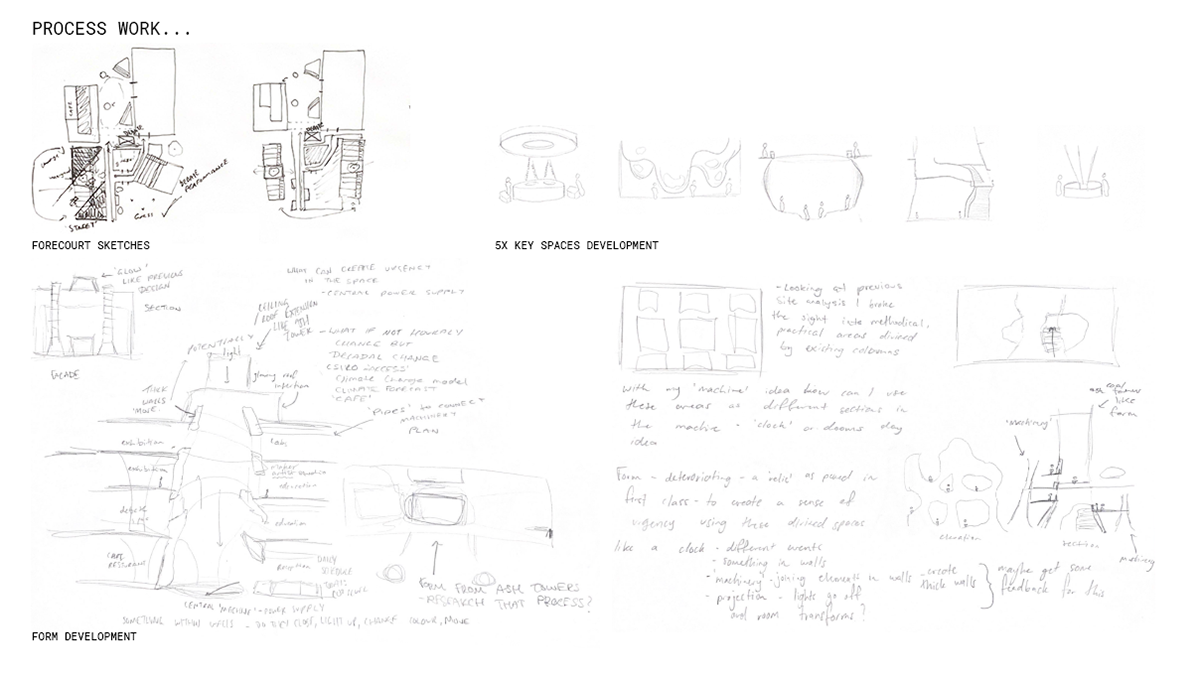 PROCESS WORK...
CAFE
DEBATE
DEBATE
DEBATE
PERFORMANCE
GRASS
'START'
FORECOURT SKETCHES
5X KEY SPACES DEVELOPMENT
'GLOW'
LIKE PREVIOUS
DESIGN
SECTION
FACADE
WHAT CAN CREATE URGENCY
IN THE SPACE
- CENTRAL POWER SUPPLY
CEILING
ROOF EXTENSION
LIKE ASH
TOWER
- WHAT IF NOT HOURLY
CHANGE BUT
DECADAL CHANGE
CSIRO ACCESS'
CLIMATE CHANGE MODEL
CLIMATE FORECAST
'CAFE'
POTENTIALLY
light
glowing roof
insertion
THICK
WALLS
'MOVE.
'PIPES' TO CONNECT
MACHINERY
PLAN
exhibition
exhibition
debate
education
education
CAFE
RESTAURANT
DAILY
CENTRAL 'MACHINE' - POWER SUPPLY
SOMETHING WITHIN WALLS - DO THEY CLOSE, LIGHT UP, CHANGE COLOUR, MOVE
FORM FROM ASH TOWERS
- RESEARCH THAT PROCESS?
FORM DEVELOPMENT
- Looking at previous
Site analysis I broke
the sight into methodical,
practical areas divided
by existing columns
With my 'machine' idea how can I use
these areas as different sections in
the machine - 'clock' or dooms day
idea
Form - deteriorating - a 'relic' as placed in
first class - to create a sense of
urgency using these divided spaces
like a clock - different events
- something in walls
- 'machinery' - joining elements in walls
- projection - lights go off
and room transforms?
create
thick walls
maybe get some
feedback for this
'machinery'
like
form
elevation
section
machinery